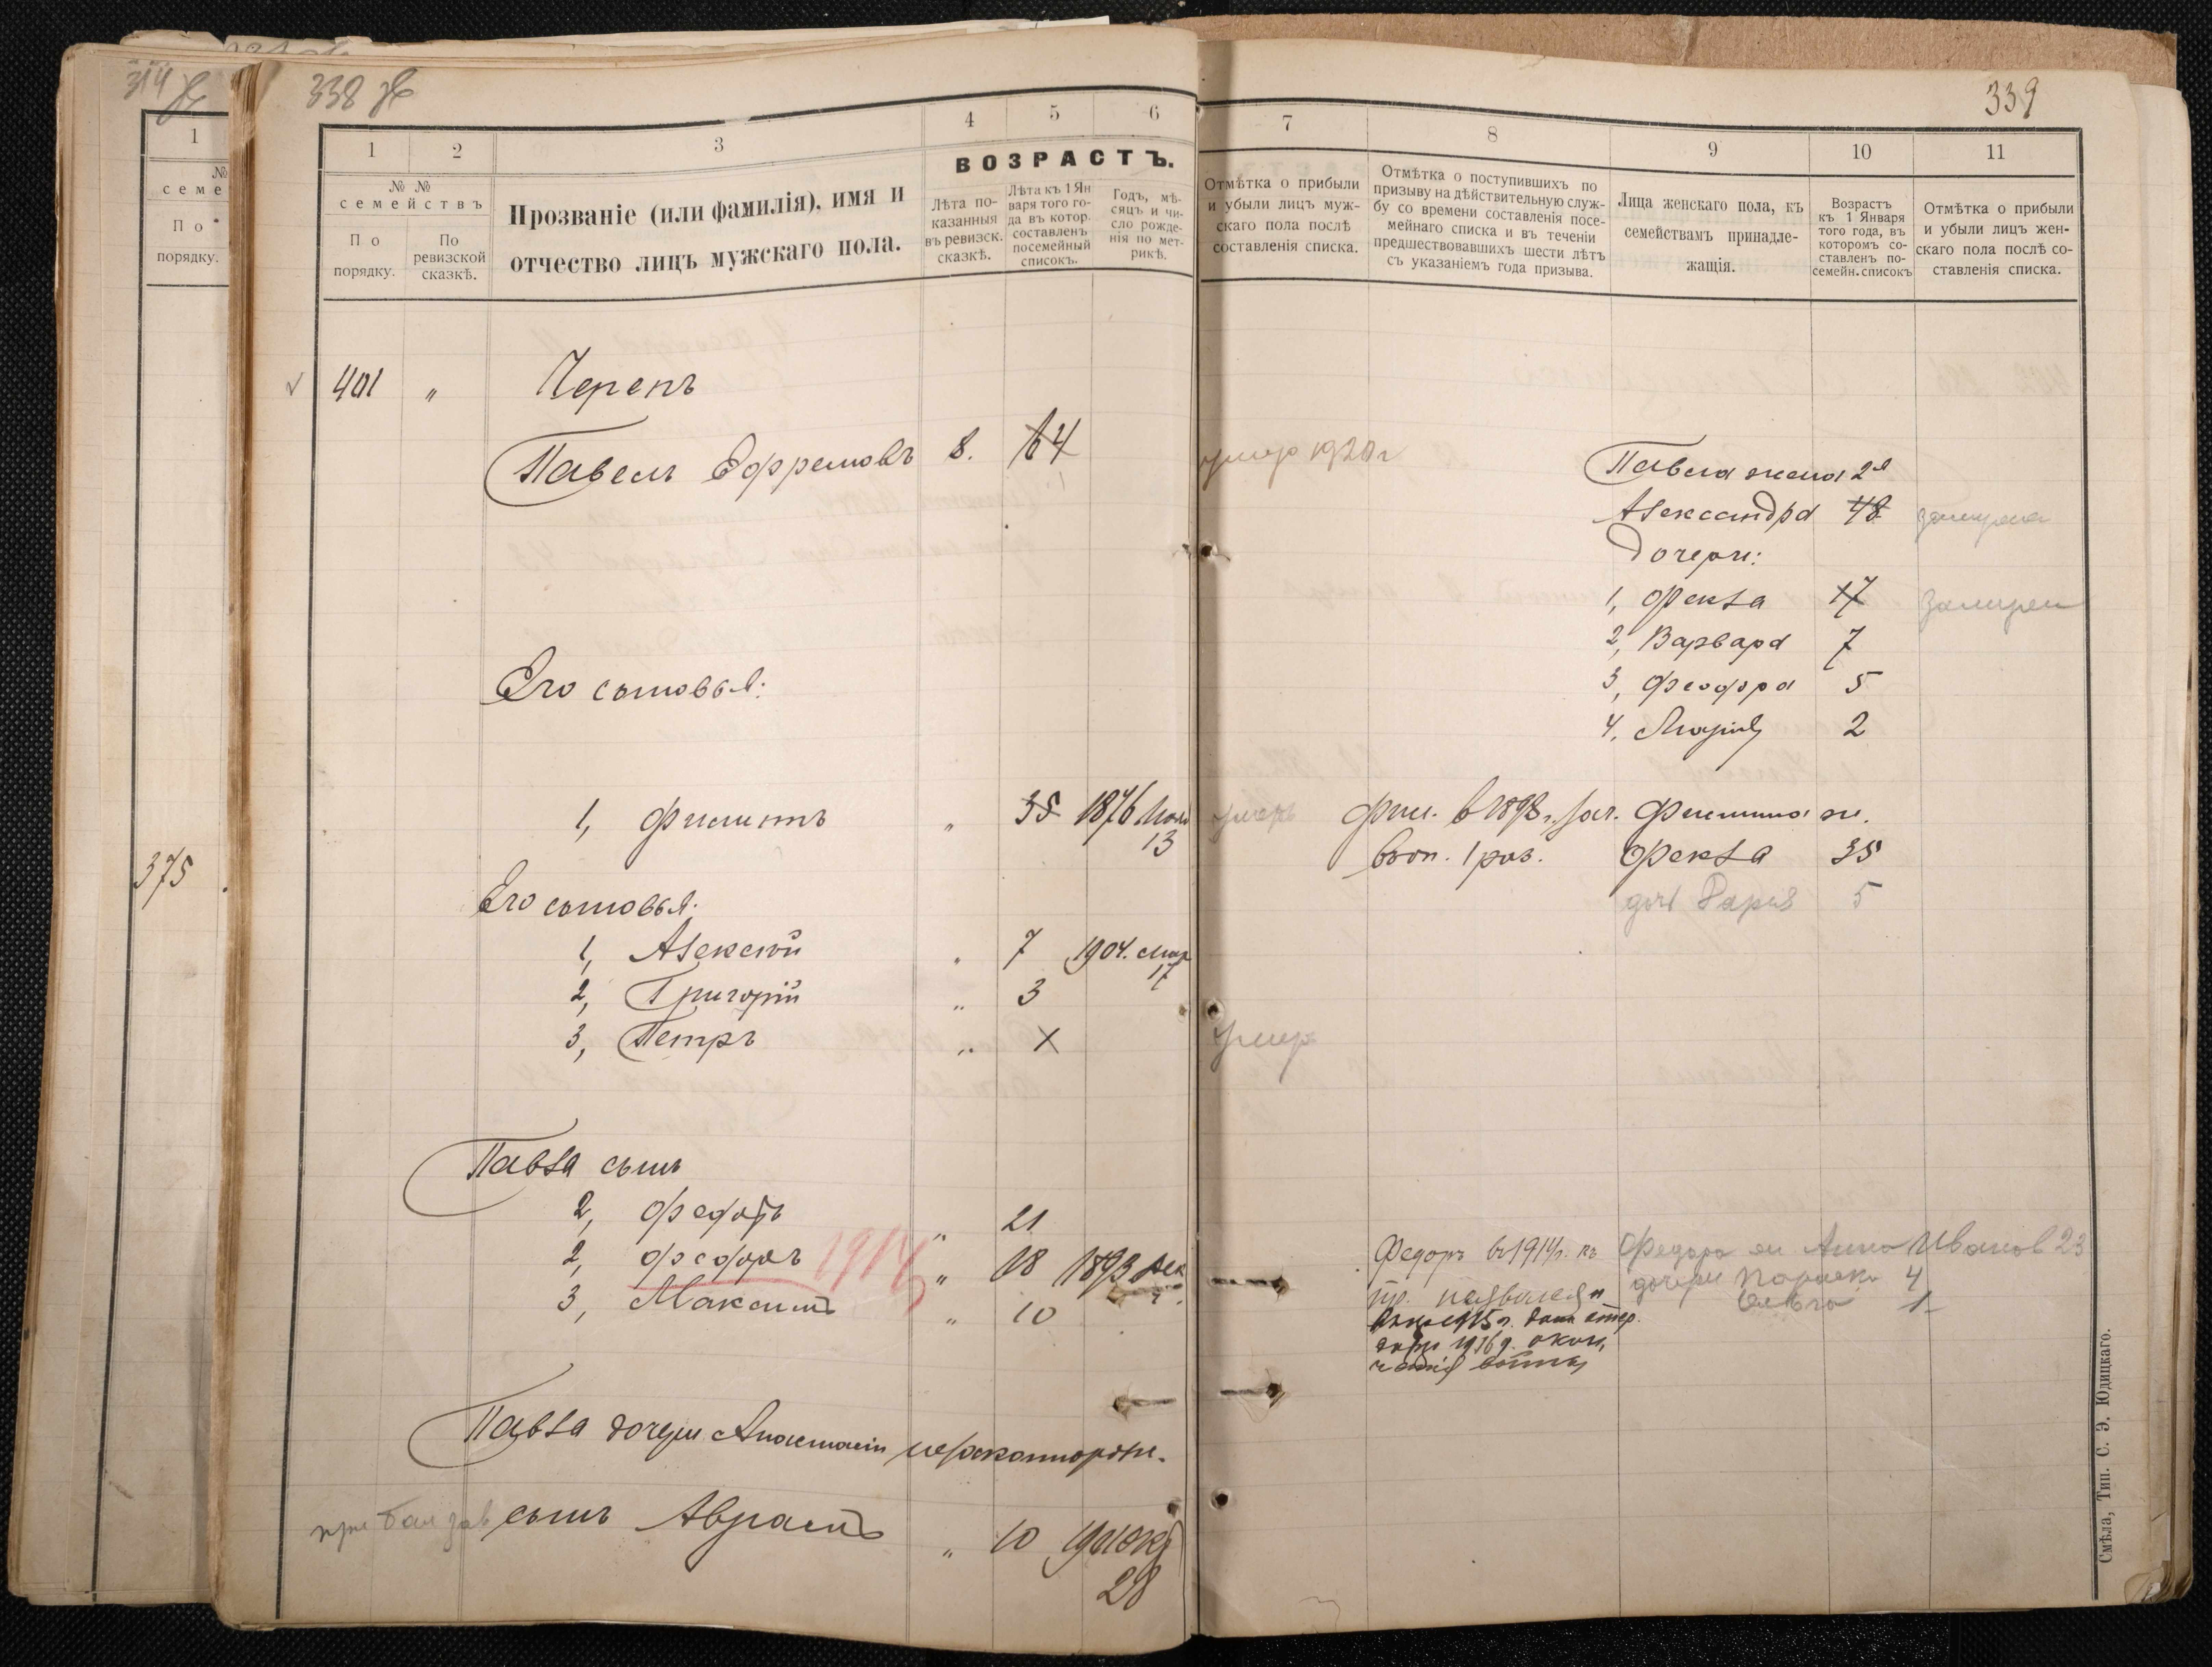 314
338
339
1
№
семе
По
порядку.
375
1
2
3
4
5
6
7
8
9
10
11
№ №
семействъ
По
порядку.
По
ревизской
сказкѣ.
Прозваніе (или фамилія), имя и
отчество лицъ мужскаго пола.
ВОЗРАСТЪ.
Лѣта по-
казанныя
въ ревизск.
сказкѣ.
Лѣта къ 1 Ян
варя того го-
да въ котор.
составленъ
посемейный
списокъ.
Годъ, мѣ-
сяцъ и чи-
сло рожде-
нія по мет-
рикѣ.
Отмѣтка о прибыли
и убыли лицъ муж-
скаго пола послѣ
составленія списка.
Отмѣтка о поступившихъ по
призыву на дѣйствительную служ-
бу со времени составленія посе-
мейнаго списка и въ теченіи
предшествовавшихъ шести лѣтъ
съ указаніемъ года призыва.
Лица женскаго пола, къ
семействамъ принадле-
жащія.
Возрастъ
къ 1 Января
того года, въ
которомъ со-
ставленъ по-
семейн. списокъ
Отмѣтка о прибыли
и убыли лицъ жен-
скаго пола послѣ со-
ставленія списка.
401 " Черепъ
Павелъ Ефремовъ 8. 64 умер 1920 г
Павла жена 2я
Александра 48
Дочери:
1, Фекла 17
2, Варвара 7
3, Феодора 5
4, Марія 2
Его сыновья:
1, Филиппъ " 35 1876 Ноя 13 умеръ Фил. в 1898 г. зач. Филиппа ж.
воп. 1 раз. Фекла 35
доч Дарія 5
Его сыновья:
1, Алексѣй " 7 1904. Мар 17
2, Григорій " 3
3, Петръ " X умер
Павла сынъ
2, Федотъ " 21
2, Феодоръ 1914 " 18 1893 Дек
3, Максимъ " 10
Федоръ въ 1914 г. къ Федора ж Анна Иванов 23
дочери Параск 4
Ольга 1
1915 г. дана отср.
1916 г. окон
чанія войны
Павла дочери Анастасіи незаконнорожд.
сынъ Авраамъ " 10
28
Смѣла, Тип. С. Э. Юдицкаго.